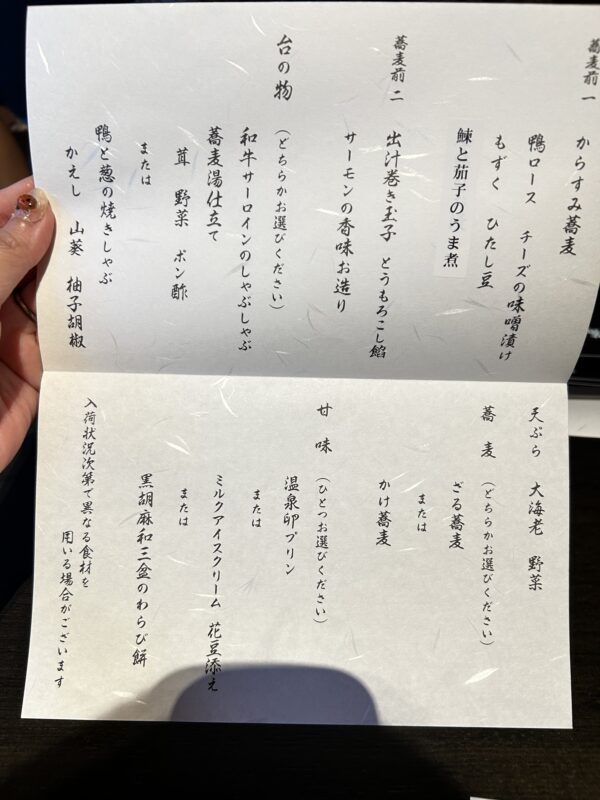 蕎麦前 一
からすみ蕎麦
鴨ロース チーズの味噌漬け
もずく ひたし豆
鰊と茄子のうま煮
蕎麦前 二
出汁巻き玉子 とうもろこし餡
サーモンの香味お造り
台の物 (どちらかお選びください)
和牛サーロインのしゃぶしゃぶ
蕎麦湯仕立て
茸 野菜 ポン酢
または
鴨と葱の焼きしゃぶ
かえし 山葵 柚子胡椒
天ぷら 大海老 野菜
蕎麦 (どちらかお選びください)
ざる蕎麦
または
かけ蕎麦
甘味 (ひとつお選びください)
温泉卵プリン
または
ミルクアイスクリーム 花豆添え
または
黒胡麻和三盆のわらび餅
入荷状況次第で異なる食材を
用いる場合がございます